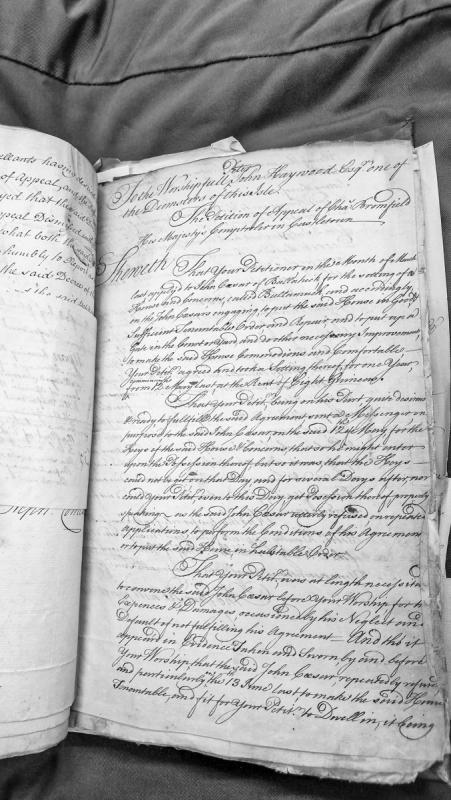 ellants having
of Appeal, and the
yed that the said
ppeal Dism
what both the said
humbly to Report
the said Decree of
the said
To the Worshipfull John Haywood Esqr. one of
the Deemsters of this Isle.
The Petition of Appeal of Chas. Bromfield
His Majesty's Comptroler in Castletown
Sheweth That Your Petitioner in the Month of March
last applyed to John Cæsar of for the setting of a
House and Concerns, called and accordingly
on the John Cæsars engaging to put the said House in Good &
Sufficient Tenantable Order and Repair and to put up a
Gate in the Court or Yard and do other necessary Improvements,
to make the said House Commodious and Comfortable
Your Petitr. agreed and took a Setting thereof, for one Year,
from 12 May last at the Rent of Eight Guineas.
That your Petitr. being on his Part, quite desirous
& ready to fullfill the said Agreement sent a Messenger on
purpose to the said John Cæsar, on the said 12th May for the
Keys of the said House & Concerns, that so he might enter
upon the Possession thereof, but so it was, that the Keys
could not be got on that Day and for several Days after, nor
could your Petitr. even to this Day, get Possession thereof properly
speaking as the said John Cæsar refused on repeated
applications to perform the Conditions of his Agreement
or to put the said House in Habitable Order
That Your Petitr. was at length necessita
to convene the said John Cæsar before Your Worship for
Expences & Damages occasioned by his Neglect and
Default of not fulfilling his Agreement And tho it
appeard in Evidence taken and Sworn by and before
Your Worship that the said John Cæsar repeatedly refused
and particularly on the 13th June last to make the said House
Tenantable, and fit for Your Petitr. to Dwell in, it being